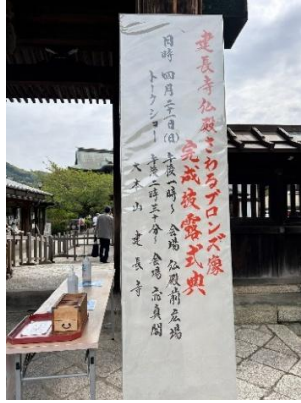 建長寺仏殿さわるブロンズ像
完成披露式典
日時 四月二十一日(日)午後一時～ 会場 仏殿前広場
トークショー 午後二時三十分～ 会場 応真閣
大本山 建長寺